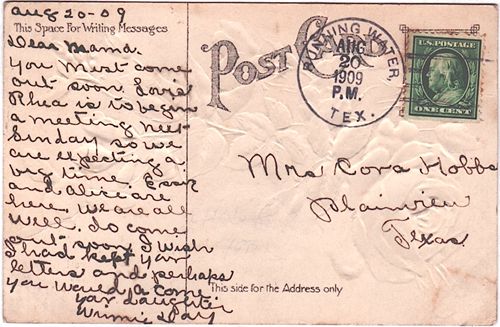 aug 20-09
This Space For Writing Messages
Dear Mama.
You Must come
out soon
Rhea is to begin
a meeting next
Sunday so we
are expecting a
big time. Essie
and alice are
here. We are all
well. So come
out soon I wish
I had kept your
letters and perhaps
you would a come
your daughter
Winnie Day
POST CARD
RUNNING WATER,
AUG
20
1909
P.M.
TEX.
U.S. POSTAGE
ONE CENT
Mrs Cora Hobbs
Plainview
Texas
This side for the Address only